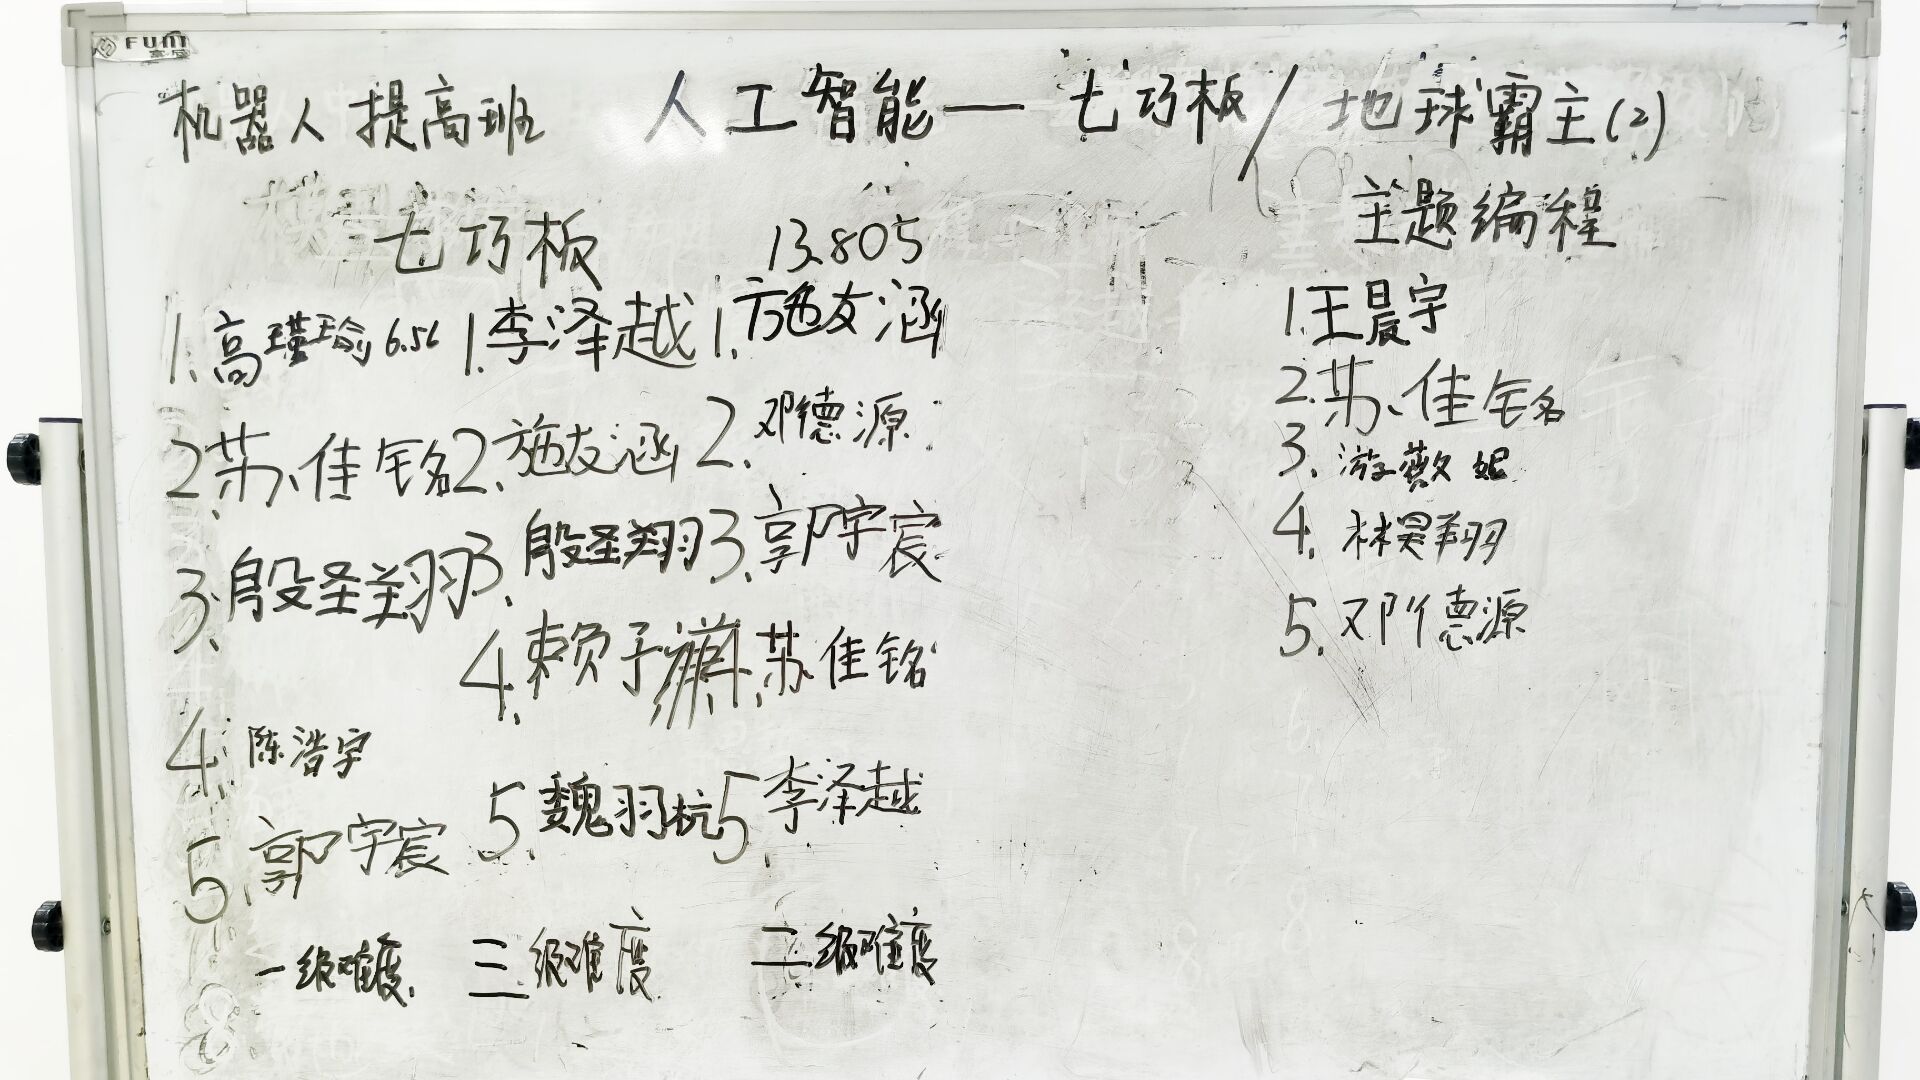 机器人提高班 人工智能—七巧板/地球霸主(2)
七巧板 13.805
1.高瑾瑜 6.56
2.苏佳铭
3.殷圣翔
4.陈浩宇
5.郭宇宸
一级难度
1.李泽越
2.施友涵
3.殷圣翔
4.赖子
5.魏羽杭
三级难度
1.施友涵
2.邓德源
3.郭宇宸
4.苏佳铭
5.李泽越
二级难度
主题编程
1.王晨宇
2.苏佳铭
3.游薇妮
4.林昊翔
5.邓德源